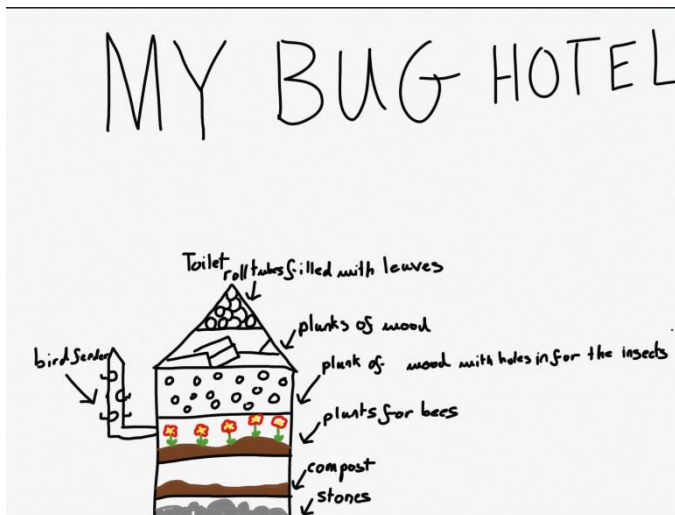 MY BUG HOTEL
Toilet
roll tubes filled with leaves
planks of wood
bird feeder
plank of wood with holes in for the insects
plants for bees
compost
stones